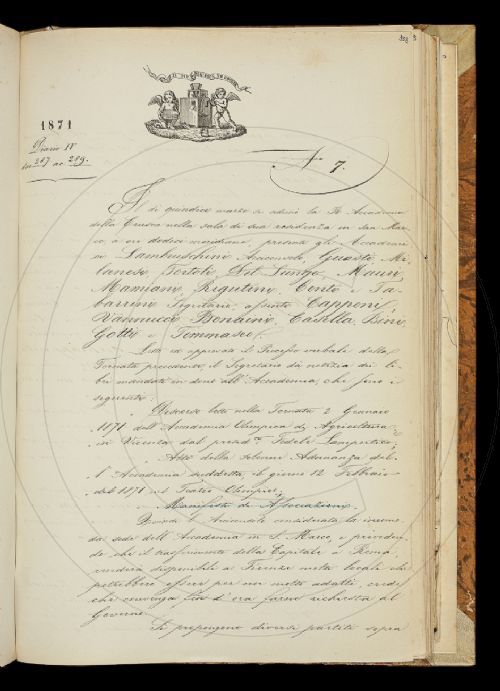 1871
Diario IV
da 287 a 289.
N° 7.
Il dì quindici marzo si adunò la R. Accademia
della Crusca nella sala di sua residenza in San Mar-
co, a ore dodici meridiane, presenti gli Accademi
ci Lambruschini Arciconsolo, Guasti, Mi-
lanesi, Tortoli, Del Lungo, Mauri,
Mamiani, Rigutini, Conti e Ta-
barrini Segretario, assenti Capponi,
Vannucci, Bonaini, Casella, Bini,
Gotti e Tommaseo.
Letto ed approvato il Processo verbale della
Tornata precedente, il Segretario dà notizia dei li-
bri mandati in dono all'Accademia, che sono i
seguenti:
Discorso letto nella Tornata 2 Gennaio
1871 dell'Accademia Olimpica di Agricoltura
in Vicenza dal presid.te Fedele Lampertico;
Atti della solenne Adunanza del-
l'Accademia suddetta, il giorno 12 Febbraio
del 1871 nel Teatro Olimpico;
Manifesto di Associazione.
l'Arciconsolo, considerata la incomo-
da sede dell'Accademia in S. Marco, e preveden-
do che il trasferimento della Capitale a Roma,
renderà disponibili a Firenze molti locali che
potrebbero essere per noi molto adatti, crede
che convenga fin d'ora farne richiesta al
Governo.
Si propongono diversi partiti sopra